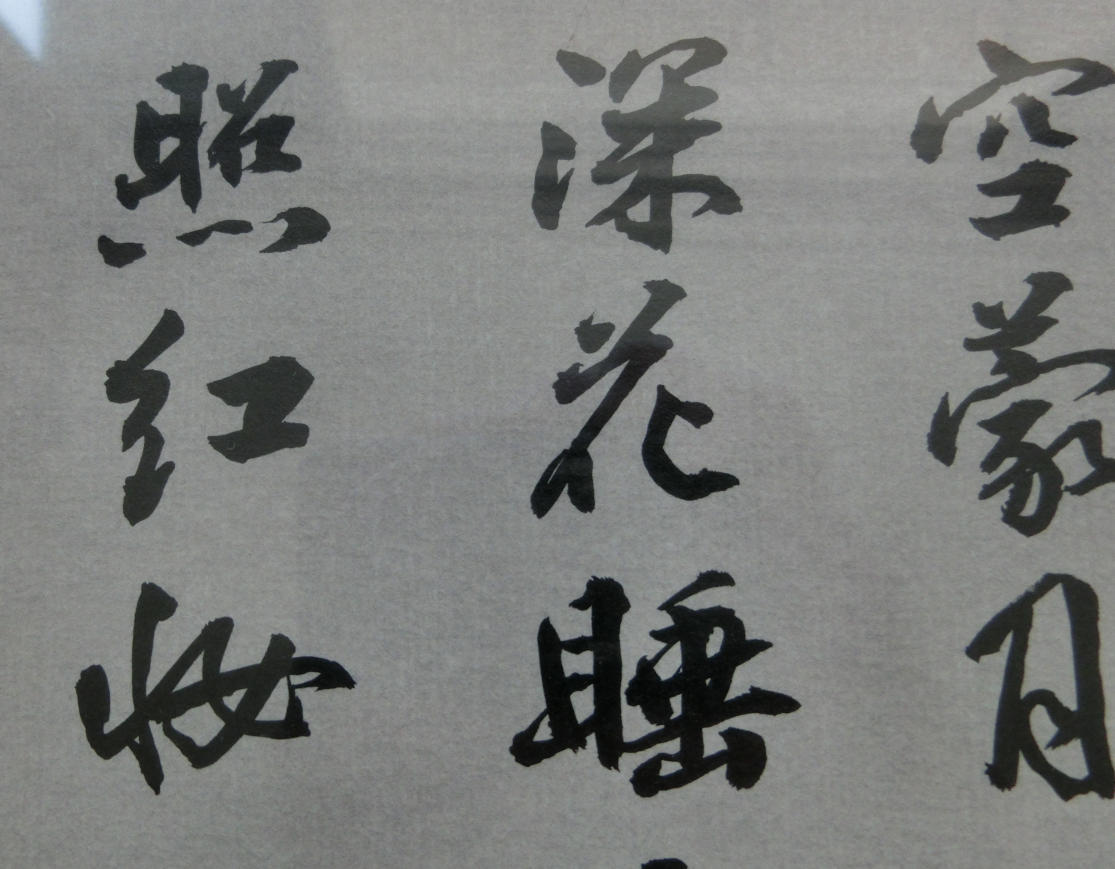 空蒙月
深花睡
照红妆